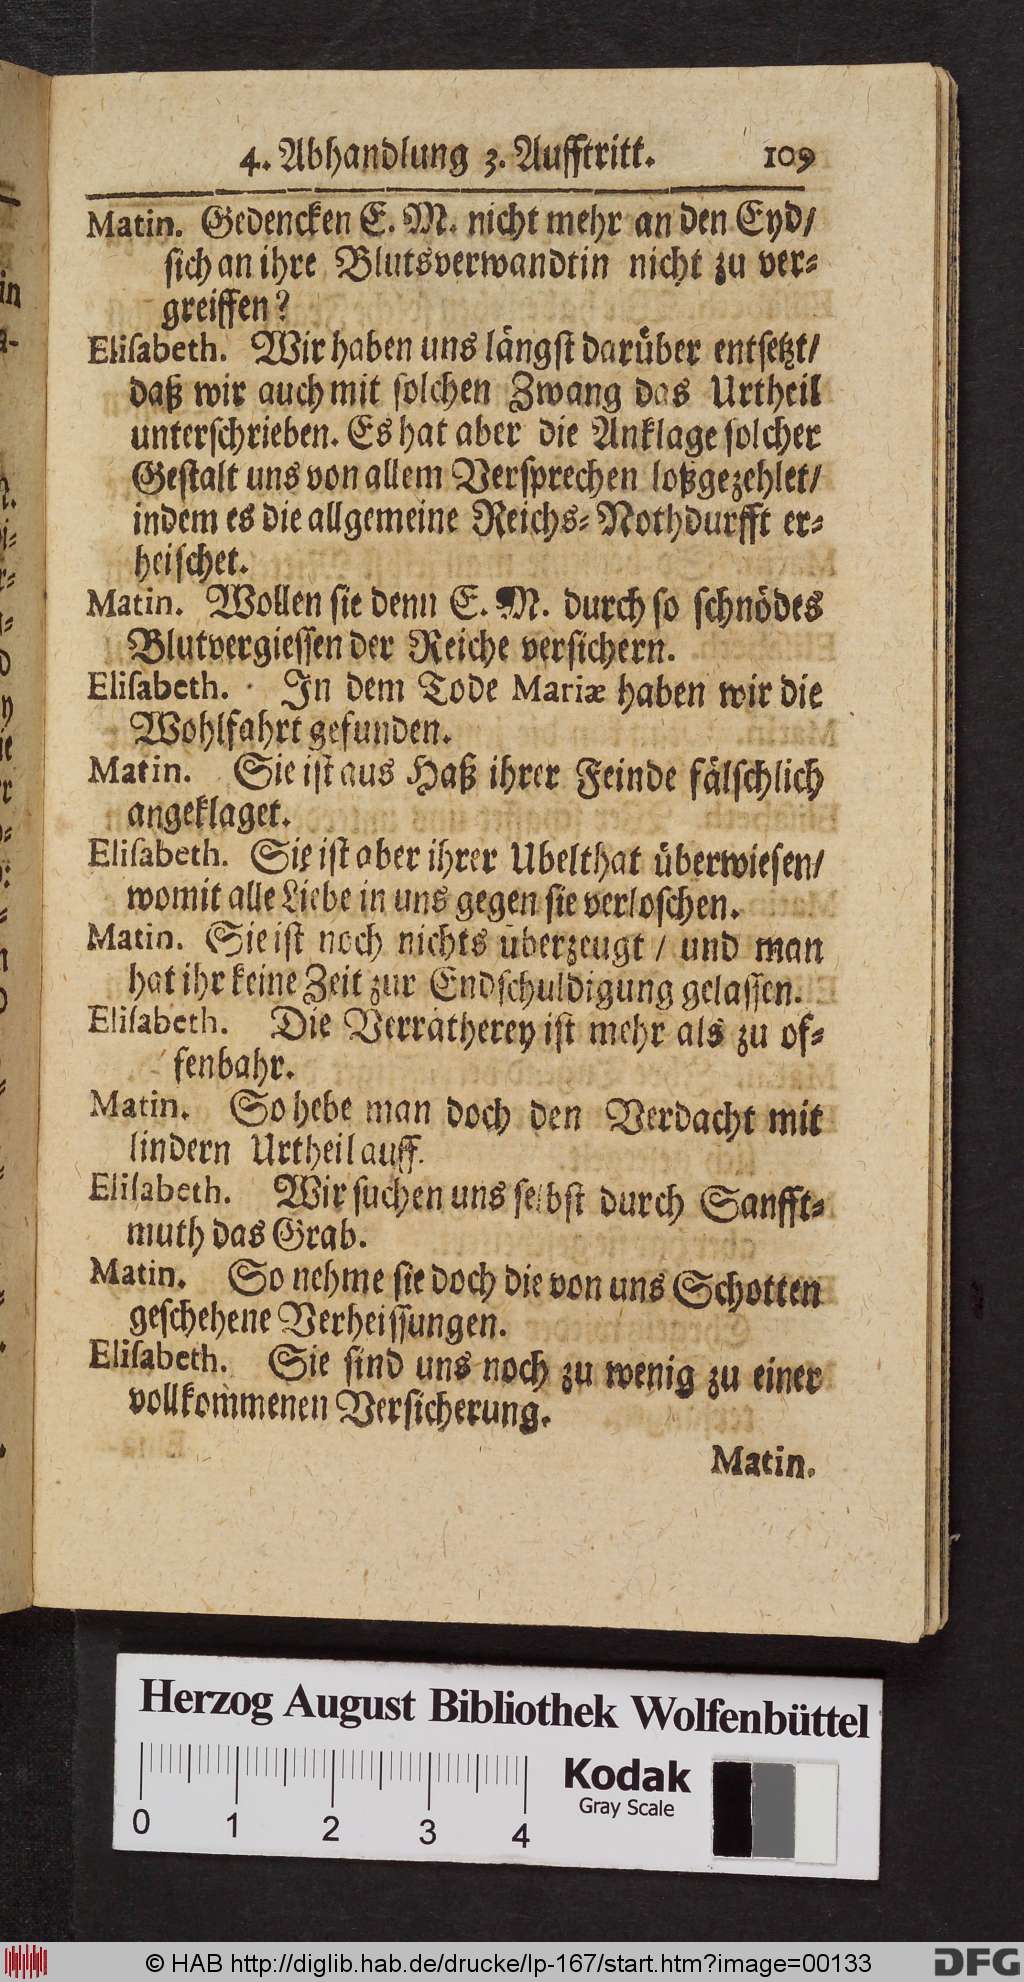 4. Abhandlung 3. Aufftritt. 109
Matin. Gedencken E. M. nicht mehr an den Eyd/
sich an ihre Blutsverwandtin nicht zu ver-
greiffen?
Elisabeth. Wir haben uns längst darüber entsetzt/
daß wir auch mit solchen Zwang das Urtheil
unterschrieben. Es hat aber die Anklage solcher
Gestalt uns von allem Versprechen loßgezehlet/
indem es die allgemeine Reichs-Nothdurfft er-
heischet.
Matin. Wollen sie denn E. M. durch so schnödes
Blutvergiessen der Reiche versichern.
Elisabeth. In dem Tode Mariæ haben wir die
Wohlfahrt gefunden.
Matin. Sie ist aus Haß ihrer Feinde fälschlich
angeklaget.
Elisabeth. Sie ist aber ihrer Ubelthat überwiesen/
womit alle Liebe in uns gegen sie verloschen.
Matin. Sie ist noch nichts überzeugt / und man
hat ihr keine Zeit zur Endschuldigung gelassen.
Elisabeth. Die Verrätherey ist mehr als zu of-
fenbahr.
Matin. So hebe man doch den Verdacht mit
lindern Urtheil auff.
Elisabeth. Wir suchen uns selbst durch Sanfft-
muth das Grab.
Matin. So nehme sie doch die von uns Schotten
geschehene Verheissungen.
Elisabeth. Sie sind uns noch zu wenig zu einer
vollkommenen Versicherung.
Matin.
Herzog August Bibliothek Wolfenbüttel
Kodak
Gray Scale
0 1 2 3 4
© HAB http://diglib.hab.de/drucke/lp-167/start.htm?image=00133
DFG